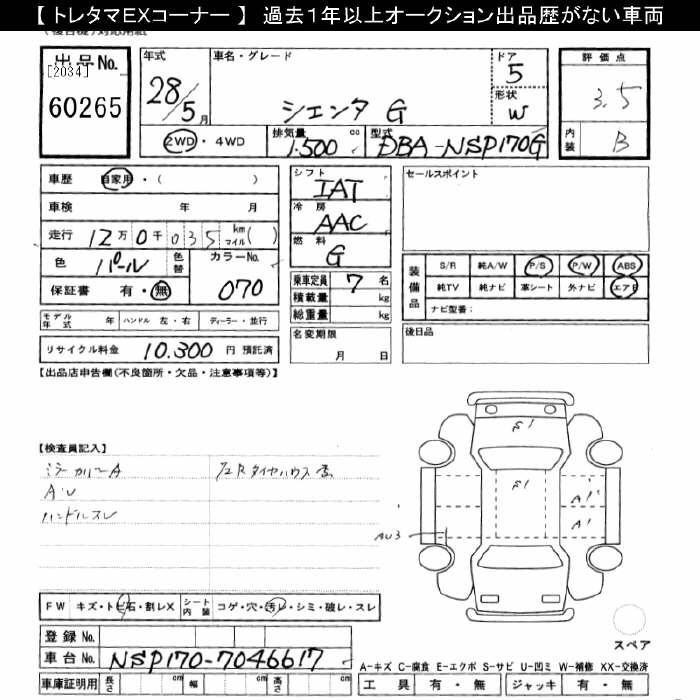 【 トレタマEXコーナー 】 過去1年以上オークション出品歴がない車両
出品No. [2034] 60265
年式 28/5月
車名・グレード シエンタ G
ドア 5
形状 W
2WD・4WD
排気量 1.500 cc
型式 DBA-NSP170G
評価点 3.5
内装 B
車歴 自家用・( )
車検 年 月
走行 12万0千035 km マイル( )
色 パール 色替
カラーNo. 070
保証書 有・無
シフト IAT
冷房 AAC
燃料 G
乗車定員 7 名
積載量 kg
総重量 kg
セールスポイント
装備品 S/R 純A/W P/S P/W ABS
純TV 純ナビ 革シート 外ナビ エアB
ナビ型番:
モデル年式 年 ハンドル 左・右 ディーラー・並行
名変期限 月 日
後日品
リサイクル料金 10.300 円 預託済
【出品店申告欄(不良箇所・欠品・注意事項等)】
【検査員記入】
ミラーカバーA
A・U
ハンドルスレ
S1
S1
A1
A1
AU3
FW キズ・トビ石・割レX シート内装 コゲ・穴・汚レ・シミ・破レ・スレ
登録No.
車台No. NSP170-7046617
スペア
A-キズ C-腐食 E-エクボ S-サビ U-凹ミ W-補修 XX-交換済
車庫証明用 長さ cm 幅 cm 高さ cm
工具 有・無 ジャッキ 有・無